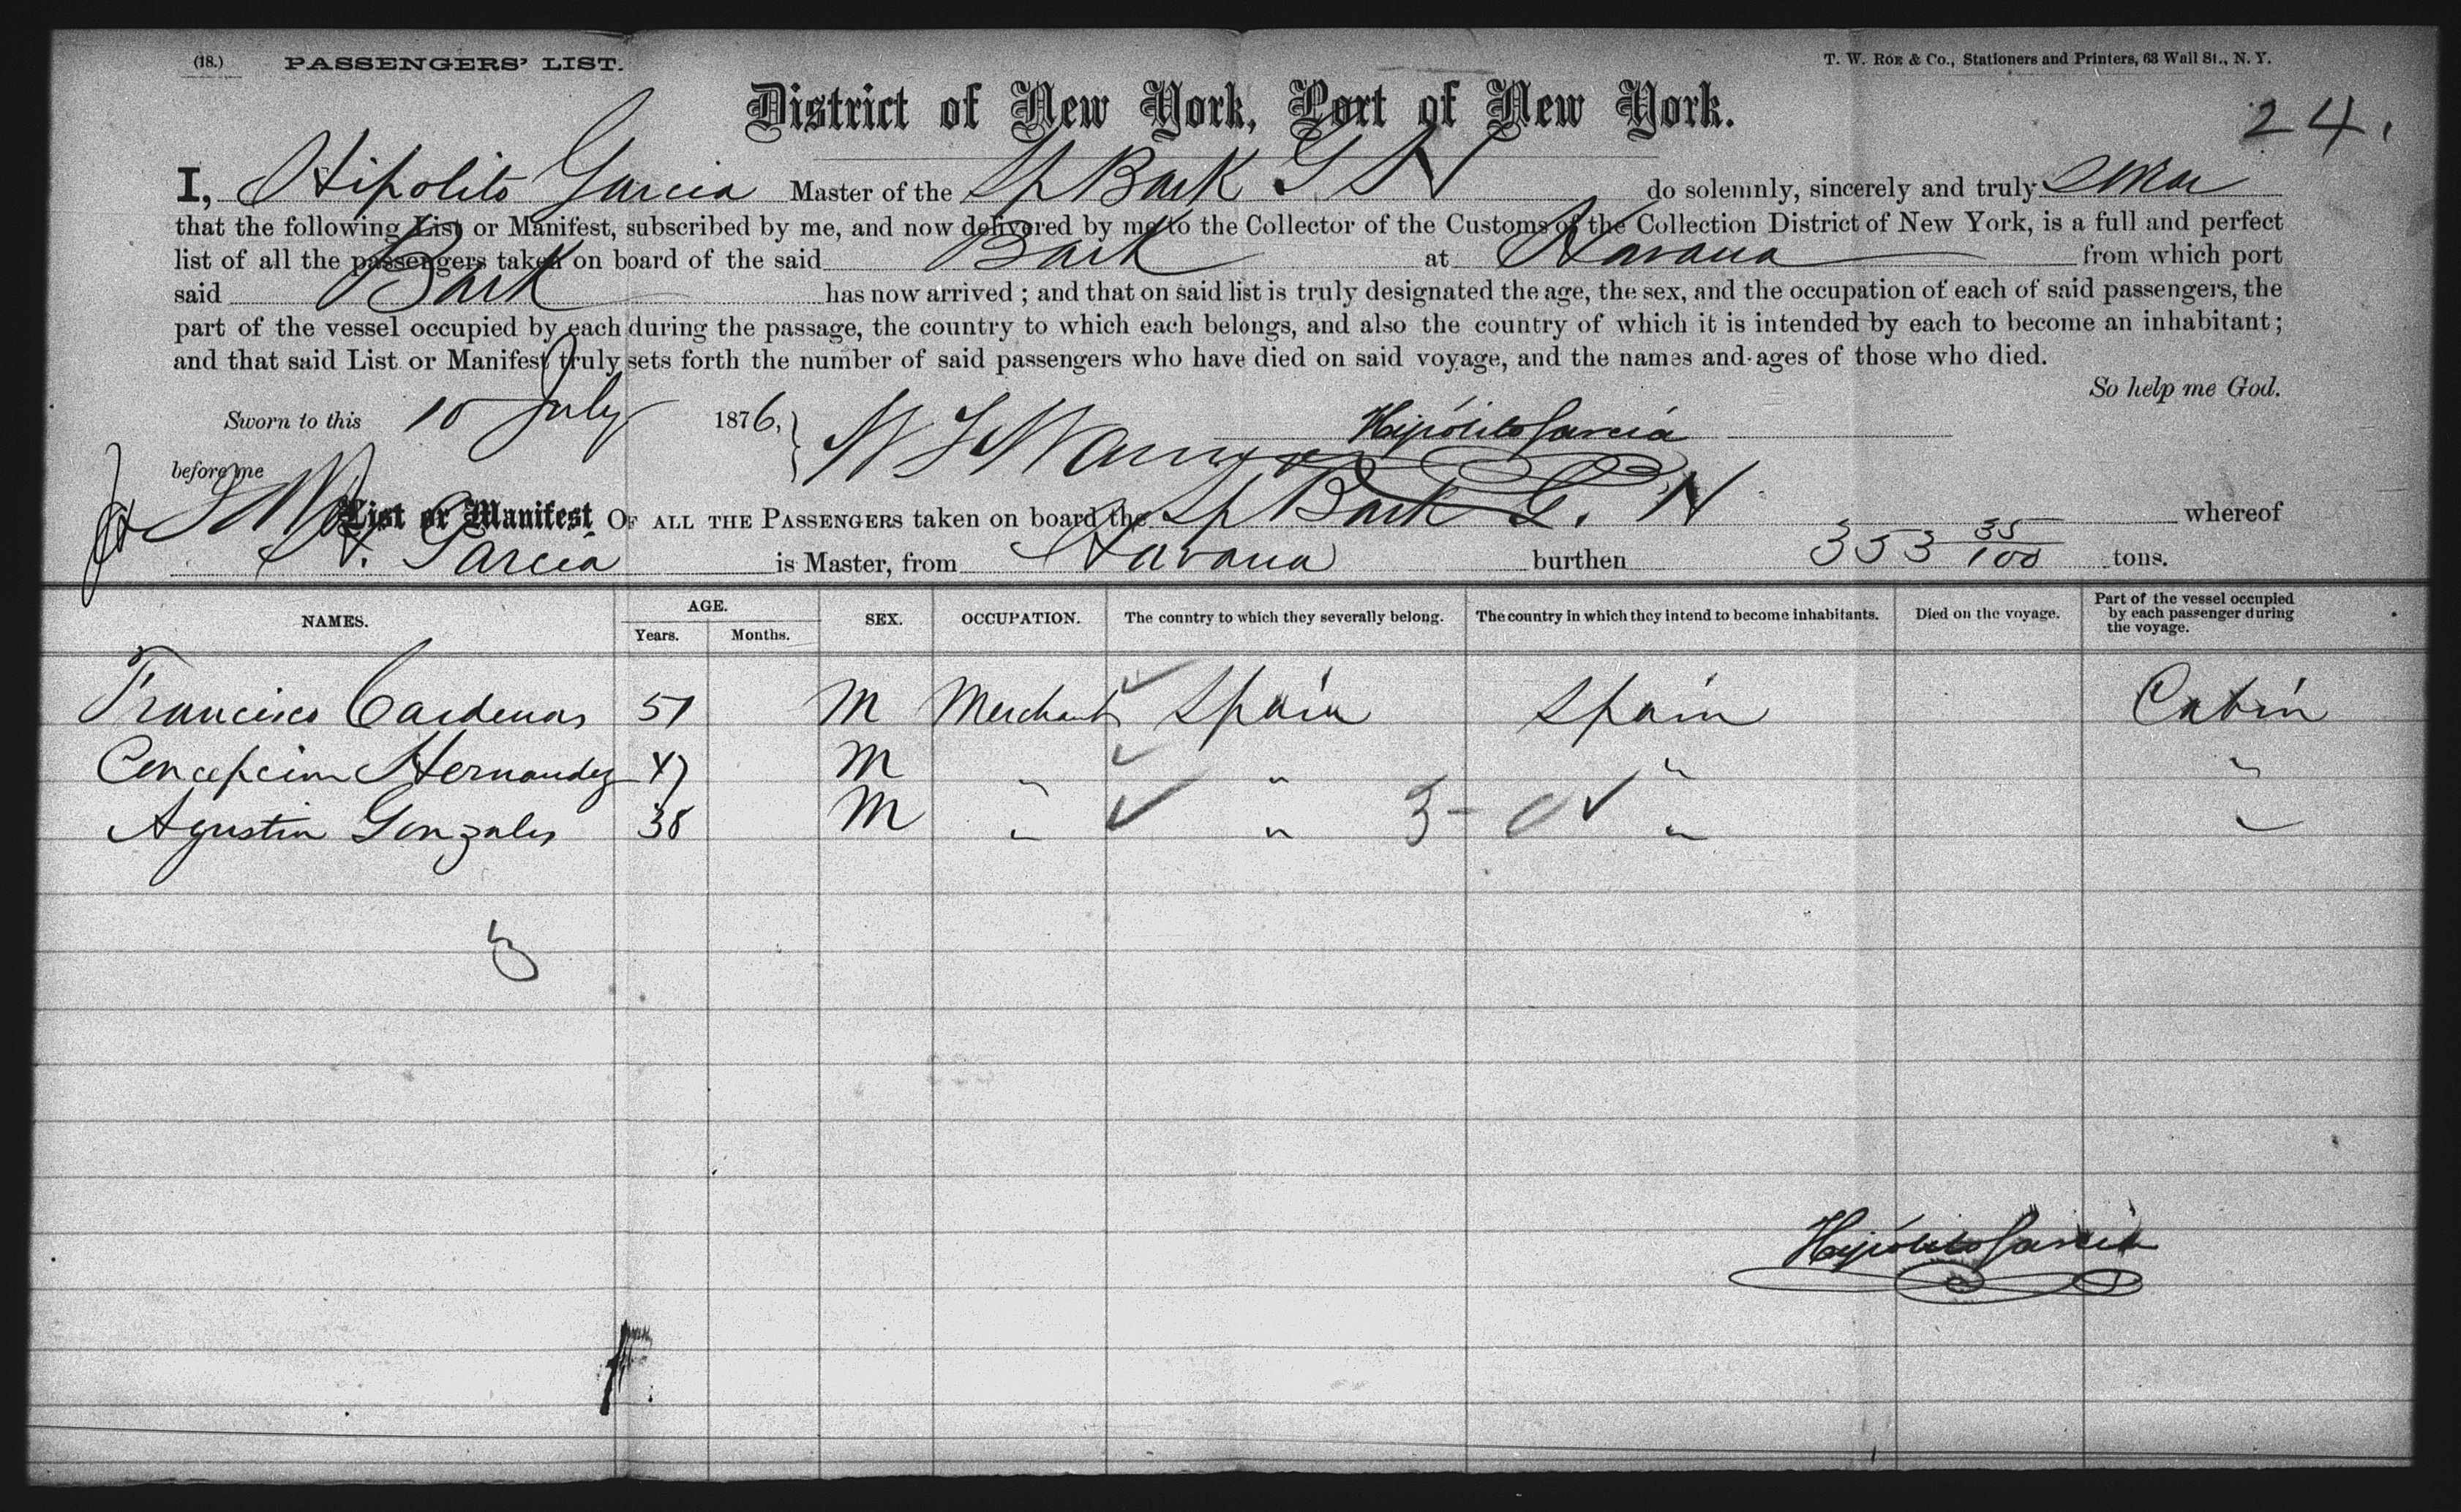 (18.) PASSENGERS' LIST. T. W. ROE & Co., Stationers and Printers, 63 Wall St., N. Y.
District of New York, Port of New York.
24.
I, Hipolito Garcia Master of the Sp Bark G N do solemnly, sincerely and truly swear
that the following List or Manifest, subscribed by me, and now delivered by me to the Collector of the Customs of the Collection District of New York, is a full and perfect
list of all the passengers taken on board of the said Bark at Havana from which port
said Bark has now arrived ; and that on said list is truly designated the age, the sex, and the occupation of each of said passengers, the
part of the vessel occupied by each during the passage, the country to which each belongs, and also the country of which it is intended by each to become an inhabitant ;
and that said List or Manifest truly sets forth the number of said passengers who have died on said voyage, and the names and ages of those who died.
So help me God.
Sworn to this 10 July 1876,
Hipólito Garcia
before me
List or Manifest OF ALL THE PASSENGERS taken on board the Sp Bark G. N whereof
H. Garcia is Master, from Havana burthen 353 35/100 tons.
NAMES. AGE. Years. Months. SEX. OCCUPATION. The country to which they severally belong. The country in which they intend to become inhabitants. Died on the voyage. Part of the vessel occupied by each passenger during the voyage.
Francisco Cardenas 51 M Merchant Spain Spain Cabin
Concepcion Hernandez 47 M " " " "
Agustin Gonzales 38 M " " 3 - " "
3
Hipólito Garcia